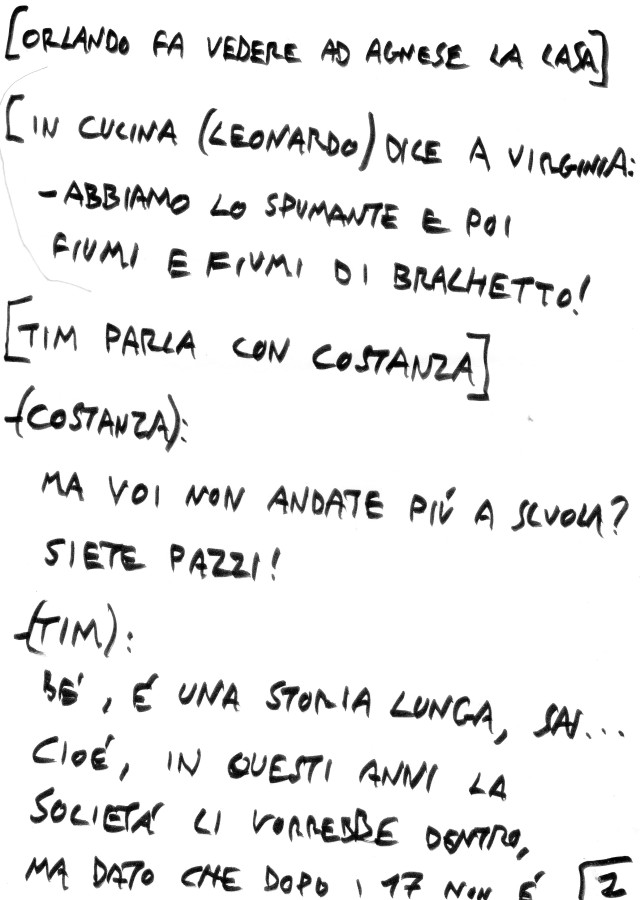 [ORLANDO FA VEDERE AD AGNESE LA CASA]
[IN CUCINA (LEONARDO) DICE A VIRGINIA:
-ABBIAMO LO SPUMANTE E POI
FIUMI E FIUMI DI BRACHETTO!
[TIM PARLA CON COSTANZA]
-(COSTANZA):
MA VOI NON ANDATE PIÚ A SCUOLA?
SIETE PAZZI!
-(TIM):
BÉ, É UNA STORIA LUNGA, SAI...
CIOÉ, IN QUESTI ANNI LA
SOCIETÁ CI VORREBBE DENTRO,
MA DATO CHE DOPO I 17 NON É
2